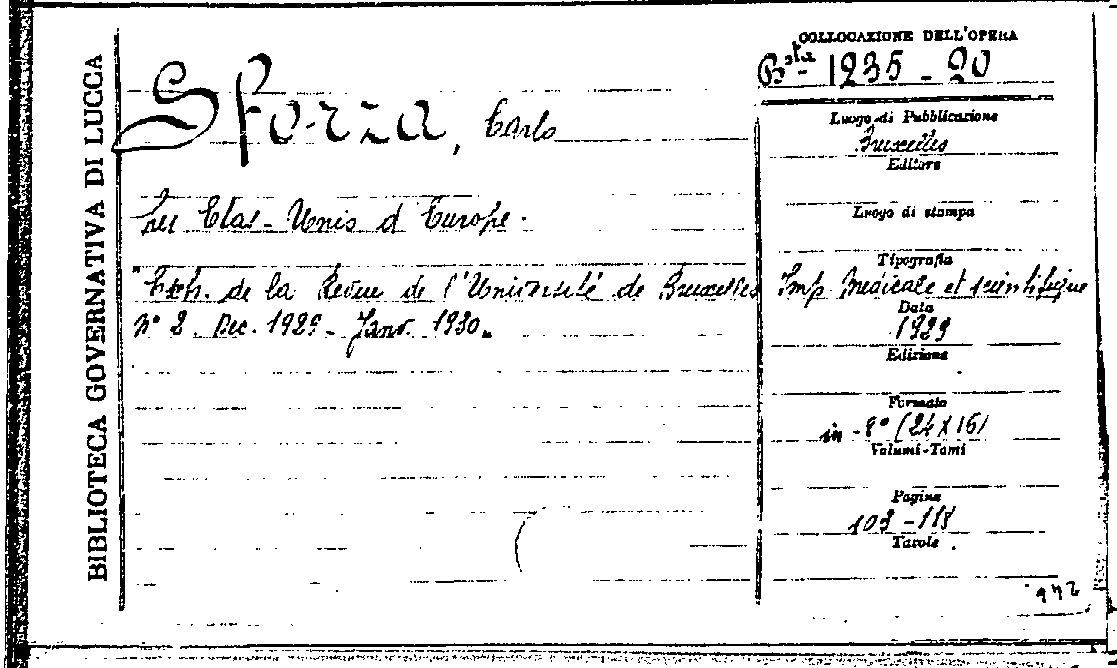 BIBLIOTECA GOVERNATIVA DI LUCCA
Sforza, Carlo
Les Etas-Unis d'Europe.
"Estr. de la Revue de l'Université de Bruxelles
N° 2. Dec. 1929 - Janv. 1930.
COLLOCAZIONE DELL'OPERA
Bsta - 1235 - 20
Luogo di Pubblicazione
Bruxelles
Editore
Luogo di stampa
Tipografia
Imp Médicale et scientifique
Data
1929
Edizione
Formato
in - 8° (24 X 16)
Volumi-Tomi
Pagine
103 - 118
Tavole
942